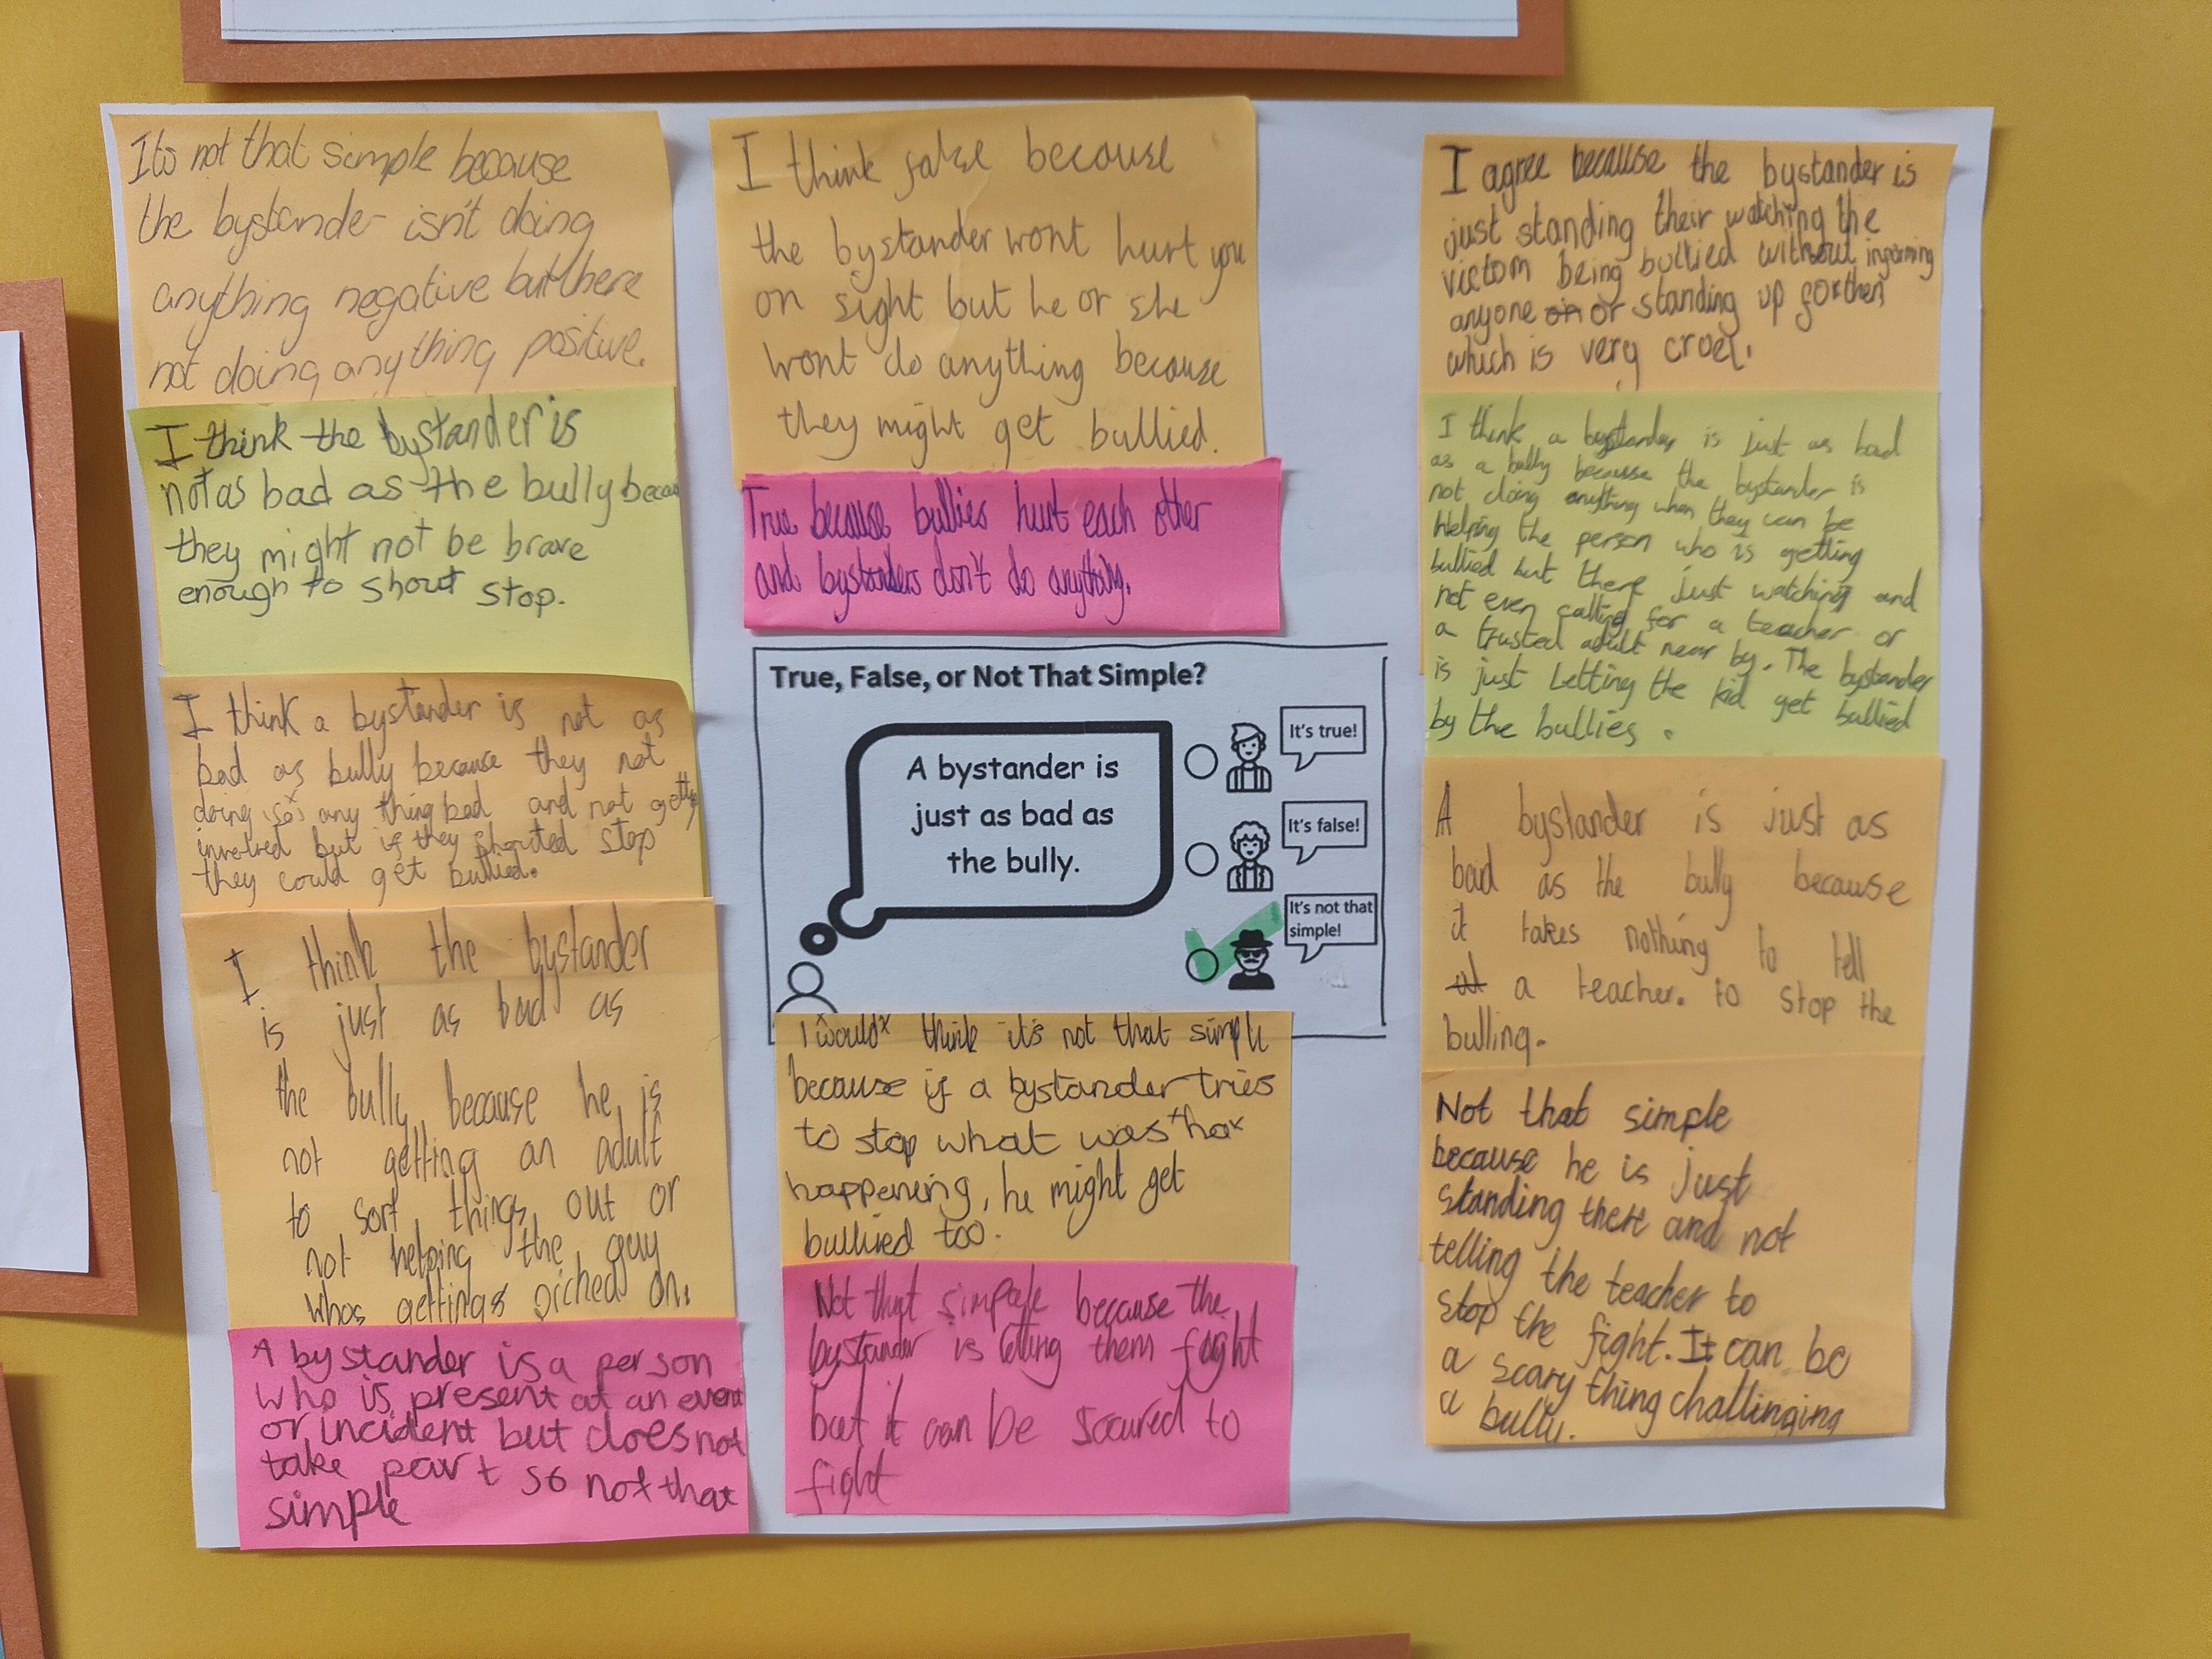 Its not that simple because
the bystander isn't doing
anything negative but there
not doing anything positive.
I think the bystander is
not as bad as the bully becau
they might not be brave
enough to shout stop.
I think a bystander is not as
bad as bully because they not
doing so any thing bad and not getting
involved but if they shouted stop
they could get bullied.
I think the bystander
is just as bad as
the bully because he is
not getting an adult
to sort things out or
not helping the guy
whos getting picked on.
A bystander is a person
who is present at an event
or incident but does not
take part so not that
simple
I think false because
the bystander wont hurt you
on sight but he or she
wont do anything because
they might get bullied.
True because bullies hurt each other
and bystanders don't do anything.
True, False, or Not That Simple?
A bystander is
just as bad as
the bully.
It's true!
It's false!
It's not that
simple!
I would think it's not that simple
because if a bystander tries
to stop what was ha
happening, he might get
bullied too.
Not that simple because the
bystander is letting them fight
but it can be scared to
fight
I agree because the bystander is
just standing their watching the
victom being bullied without informing
anyone on or standing up for them
which is very cruel.
I think a bystander is just as bad
as a bully because the bystander is
not doing anything when they can be
Helping the person who is getting
bullied but there just watching and
not even calling for a teacher or
a trusted adult near by. The bystander
is just Letting the kid get bullied
by the bullies.
A bystander is just as
bad as the bully because
it takes nothing to tell
a teacher. to stop the
bulling.
Not that simple
because he is just
standing there and not
telling the teacher to
stop the fight. It can be
a scary thing challinging
a bully.